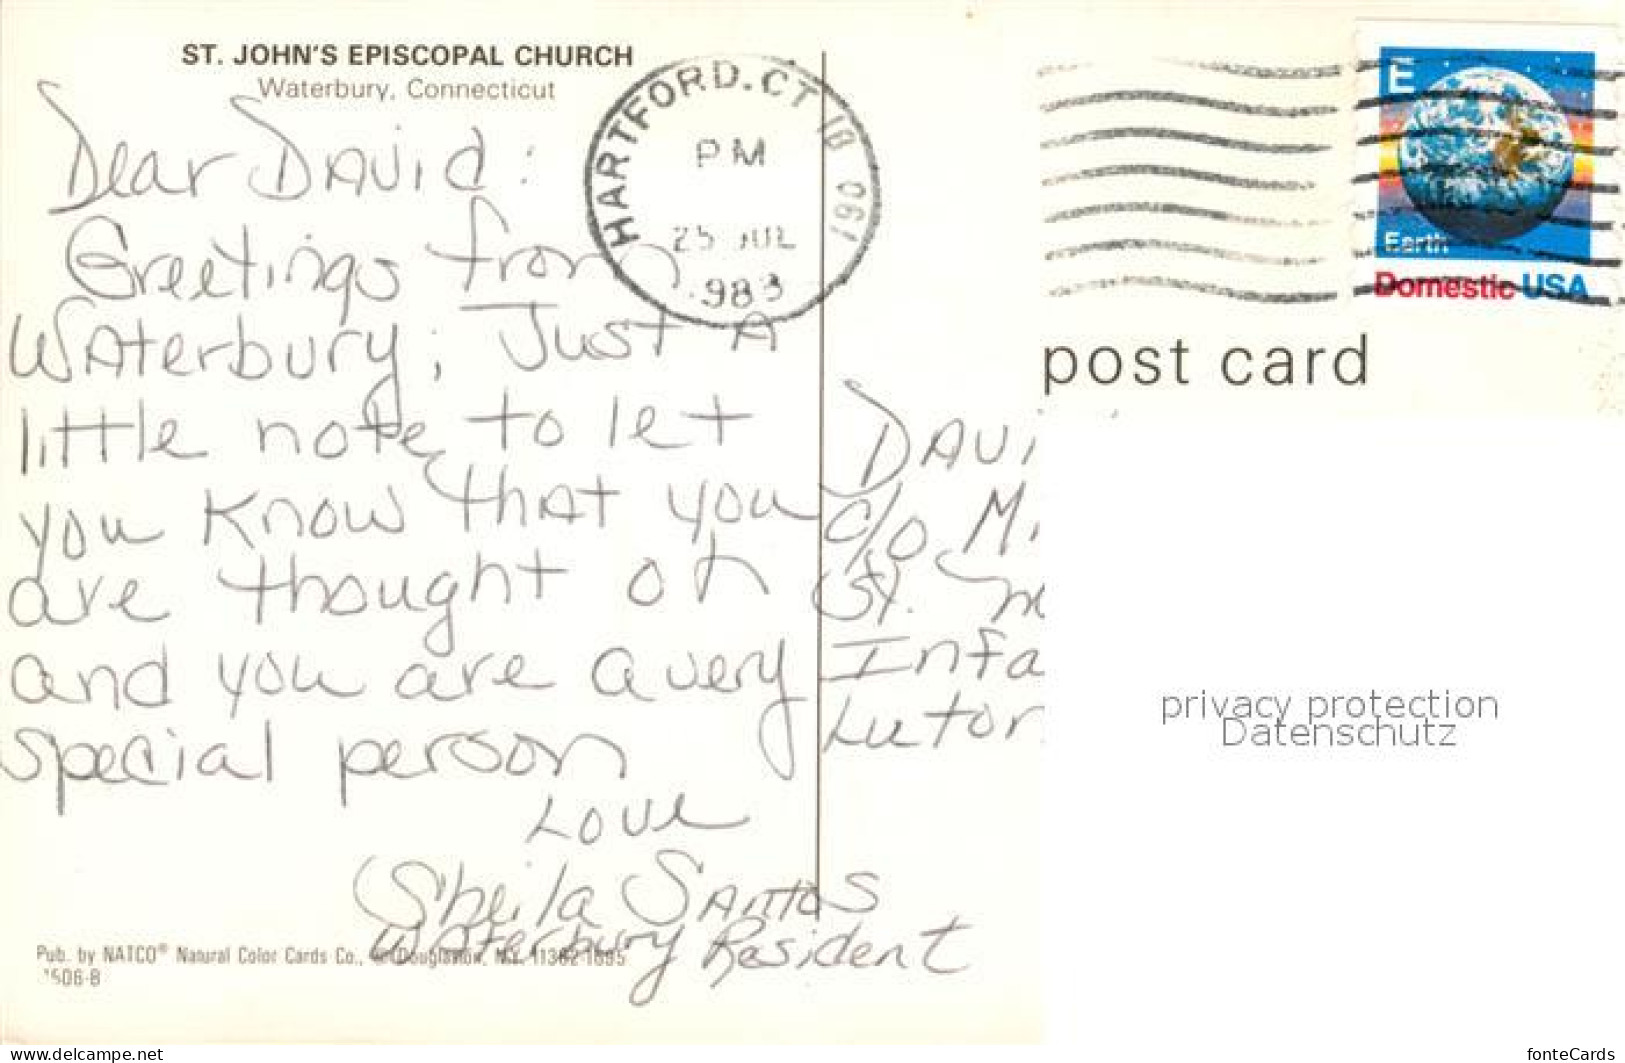 ST. JOHN'S EPISCOPAL CHURCH
Waterbury, Connecticut
Dear DAVid:
Greetings from
WAterbury; Just A
little note to let
you know that you
are thought of
and you are a very
special person
Love
Sheila SAntos
WAterbury Resident
Pub. by NATCO® Natural Color Cards Co., Douglaston, N.Y. 11362-1895
1506-B
HARTFORD.CT
PM
25 JUL
061
E
Earth
Domestic USA
post card
DAVi
c/o M
St.
Infa
Luton
privacy protection
Datenschutz
www.delcampe.net
fonteCards